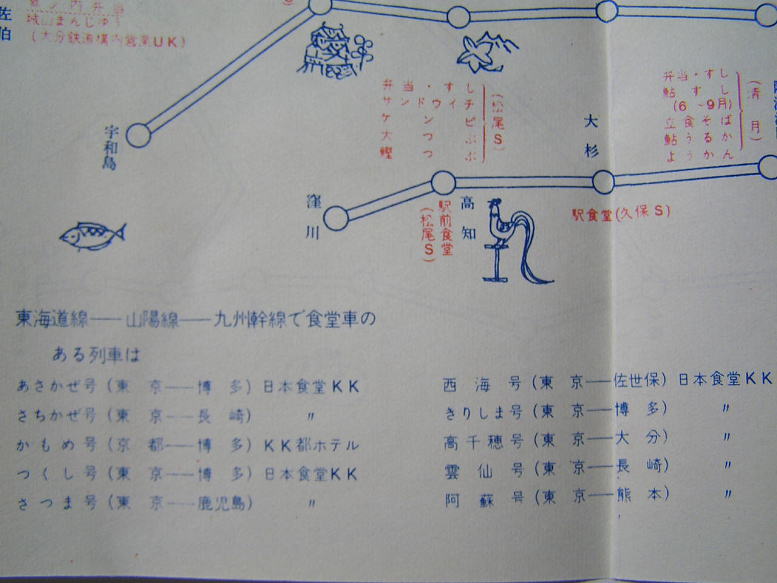 佐伯
城山まんじゅう
(大分鉄道構内営業UK)
宇和島
弁当・すし
サンドウイチ
ケンピ
大つつぶ
鰹
(松尾S)
大杉
弁当・すし
鮎すし
(6〜9月)
立食そば
鮎うるか
ようかん
(清月)
窪川
高知
駅前食堂
(松尾S)
駅食堂(久保S)
東海道線――山陽線――九州幹線で食堂車の
ある列車は
あさかぜ号(東 京――博 多)日本食堂KK
さちかぜ号(東 京――長 崎) 〃
かもめ号(京 都――博 多)KK都ホテル
つくし号(東 京――博 多)日本食堂KK
さつま号(東 京――鹿児島) 〃
西海号(東 京――佐世保)日本食堂KK
きりしま号(東 京――博 多) 〃
高千穂号(東 京――大 分) 〃
雲仙号(東 京――長 崎) 〃
阿蘇号(東 京――熊 本) 〃